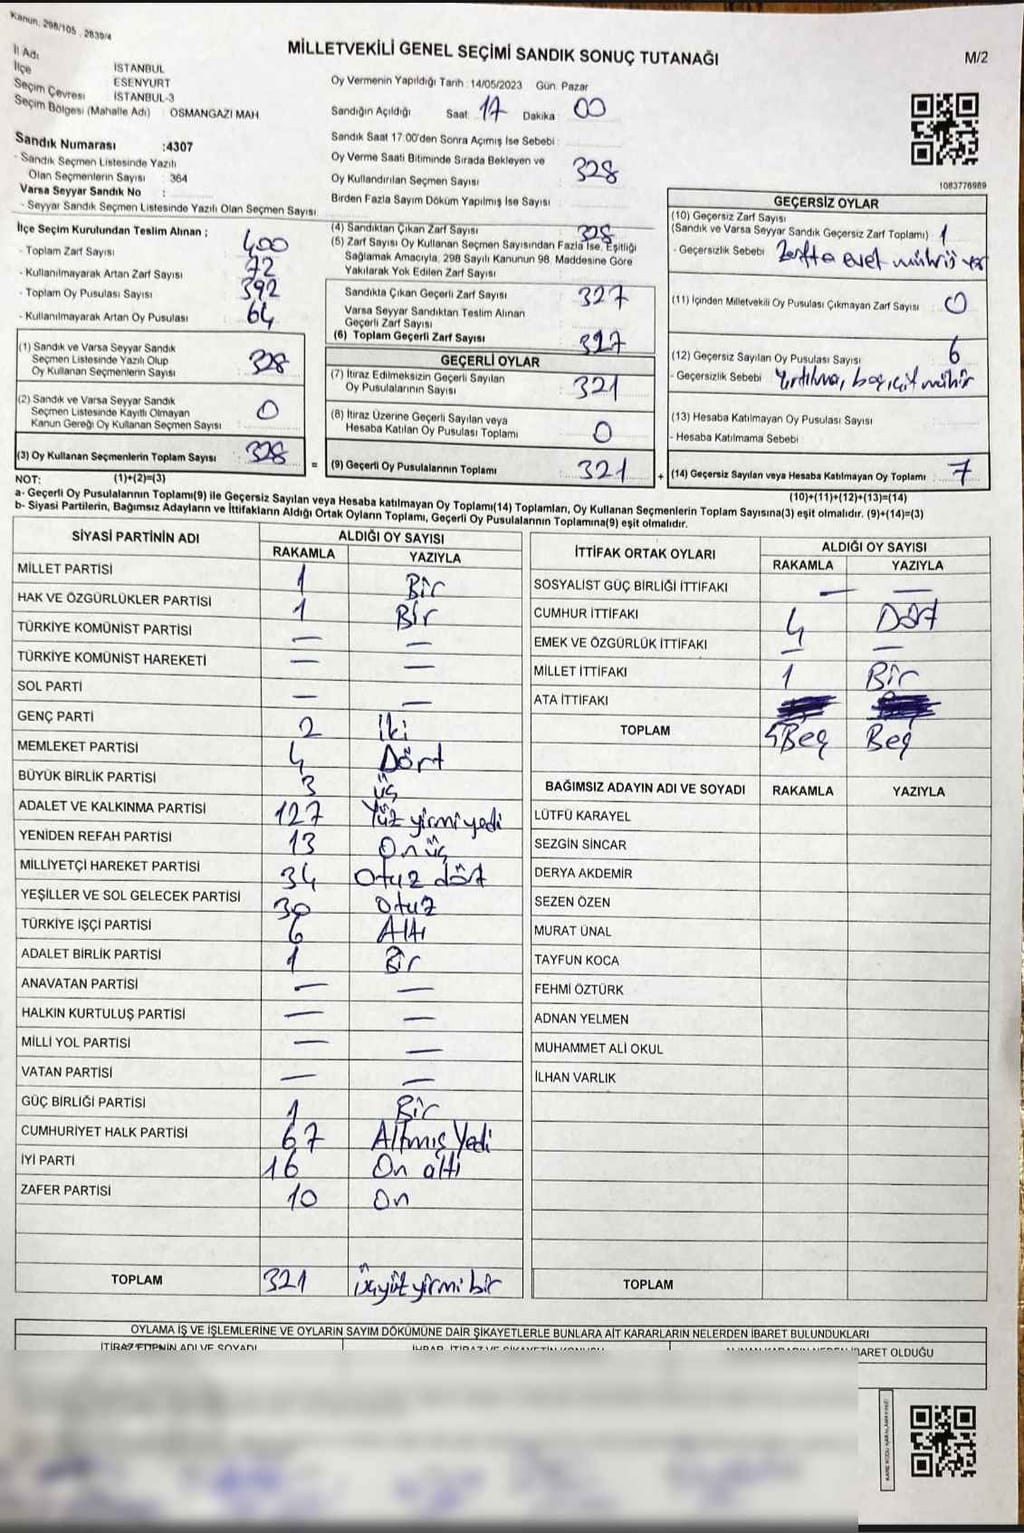 Kanun, 298/105 , 2839/4
MİLLETVEKİLİ GENEL SEÇİMİ SANDIK SONUÇ TUTANAĞI
M/2
İl Adı
İlçe İSTANBUL
Seçim Çevresi ESENYURT
Seçim Bölgesi (Mahalle Adı) İSTANBUL-3
OSMANGAZI MAH
Oy Vermenin Yapıldığı Tarih : 14/05/2023 Gün: Pazar
Sandığın Açıldığı Saat 17 Dakika 00
Sandık Saat 17:00'den Sonra Açımış İse Sebebi :
Oy Verme Saati Bitiminde Sırada Bekleyen ve
Oy Kullandırılan Seçmen Sayısı 328
Birden Fazla Sayım Döküm Yapılmış İse Sayısı
1083776989
Sandık Numarası :4307
- Sandık Seçmen Listesinde Yazılı
Olan Seçmenlerin Sayısı : 364
Varsa Seyyar Sandık No :
- Seyyar Sandık Seçmen Listesinde Yazılı Olan Seçmen Sayısı
İlçe Seçim Kurulundan Teslim Alınan ;
- Toplam Zarf Sayısı 400
- Kullanılmayarak Artan Zarf Sayısı 72
- Toplam Oy Pusulası Sayısı 392
- Kullanılmayarak Artan Oy Pusulası 64
(1) Sandık ve Varsa Seyyar Sandık
Seçmen Listesinde Yazılı Olup
Oy Kullanan Seçmenlerin Sayısı 328
(2) Sandık ve Varsa Seyyar Sandık
Seçmen Listesinde Kayıtlı Olmayan
Kanun Gereği Oy Kullanan Seçmen Sayısı : 0
(3) Oy Kullanan Seçmenlerin Toplam Sayısı : 328
(4) Sandıktan Çıkan Zarf Sayısı 328
(5) Zarf Sayısı Oy Kullanan Seçmen Sayısından Fazla İse, Eşitliği
Sağlamak Amacıyla, 298 Sayılı Kanunun 98. Maddesine Göre
Yakılarak Yok Edilen Zarf Sayısı
Sandıkta Çıkan Geçerli Zarf Sayısı 327
Varsa Seyyar Sandıktan Teslim Alınan
Geçerli Zarf Sayısı
(6) Toplam Geçerli Zarf Sayısı 327
GEÇERLİ OYLAR
(7) İtiraz Edilmeksizin Geçerli Sayılan
Oy Pusulalarının Sayısı 321
(8) İtiraz Üzerine Geçerli Sayılan veya
Hesaba Katılan Oy Pusulası Toplamı 0
= (9) Geçerli Oy Pusulalarının Toplamı 321
GEÇERSİZ OYLAR
(10) Geçersiz Zarf Sayısı
(Sandık ve Varsa Seyyar Sandık Geçersiz Zarf Toplamı) 1
- Geçersizlik Sebebi : Zarfta evet mührü var
(11) İçinden Milletvekili Oy Pusulası Çıkmayan Zarf Sayısı 0
(12) Geçersiz Sayılan Oy Pusulası Sayısı 6
- Geçersizlik Sebebi Yırtılma, boş, çift mühür
(13) Hesaba Katılmayan Oy Pusulası Sayısı
- Hesaba Katılmama Sebebi
+ (14) Geçersiz Sayılan veya Hesaba Katılmayan Oy Toplamı : 7
NOT: (1)+(2)=(3)
(10)+(11)+(12)+(13)=(14)
a- Geçerli Oy Pusulalarının Toplamı(9) ile Geçersiz Sayılan veya Hesaba katılmayan Oy Toplamı(14) Toplamları, Oy Kullanan Seçmenlerin Toplam Sayısına(3) eşit olmalıdır. (9)+(14)=(3)
b- Siyasi Partilerin, Bağımsız Adayların ve İttifakların Aldığı Ortak Oyların Toplamı, Geçerli Oy Pusulalarının Toplamına(9) eşit olmalıdır.
SİYASİ PARTİNİN ADI ALDIĞI OY SAYISI
RAKAMLA YAZIYLA
MİLLET PARTİSİ 1 Bir
HAK VE ÖZGÜRLÜKLER PARTİSİ 1 Bir
TÜRKİYE KOMÜNİST PARTİSİ — —
TÜRKİYE KOMÜNİST HAREKETİ — —
SOL PARTİ — —
GENÇ PARTİ 2 İki
MEMLEKET PARTİSİ 4 Dört
BÜYÜK BİRLİK PARTİSİ 3 üç
ADALET VE KALKINMA PARTİSİ 127 Yüz yirmi yedi
YENİDEN REFAH PARTİSİ 13 On üç
MİLLİYETÇİ HAREKET PARTİSİ 34 Otuz dört
YEŞİLLER VE SOL GELECEK PARTİSİ 30 Otuz
TÜRKİYE İŞÇİ PARTİSİ 6 Altı
ADALET BİRLİK PARTİSİ 1 Bir
ANAVATAN PARTİSİ — —
HALKIN KURTULUŞ PARTİSİ — —
MİLLİ YOL PARTİSİ — —
VATAN PARTİSİ — —
GÜÇ BİRLİĞİ PARTİSİ 1 Bir
CUMHURİYET HALK PARTİSİ 67 Altmış Yedi
İYİ PARTİ 16 On altı
ZAFER PARTİSİ 10 On
TOPLAM 321 üçyüz yirmi bir
İTTİFAK ORTAK OYLARI ALDIĞI OY SAYISI
RAKAMLA YAZIYLA
SOSYALİST GÜÇ BİRLİĞİ İTTİFAKI — —
CUMHUR İTTİFAKI 4 Dört
EMEK VE ÖZGÜRLÜK İTTİFAKI — —
MİLLET İTTİFAKI 1 Bir
ATA İTTİFAKI
TOPLAM 5 Beş Beş
BAĞIMSIZ ADAYIN ADI VE SOYADI RAKAMLA YAZIYLA
LÜTFÜ KARAYEL
SEZGİN SİNCAR
DERYA AKDEMİR
SEZEN ÖZEN
MURAT ÜNAL
TAYFUN KOCA
FEHMİ ÖZTÜRK
ADNAN YELMEN
MUHAMMET ALİ OKUL
İLHAN VARLIK
TOPLAM
OYLAMA İŞ VE İŞLEMLERİNE VE OYLARIN SAYIM DÖKÜMÜNE DAİR ŞİKAYETLERLE BUNLARA AİT KARARLARIN NELERDEN İBARET BULUNDUKLARI
İTİRAZ EDENİN ADI VE SOYADI